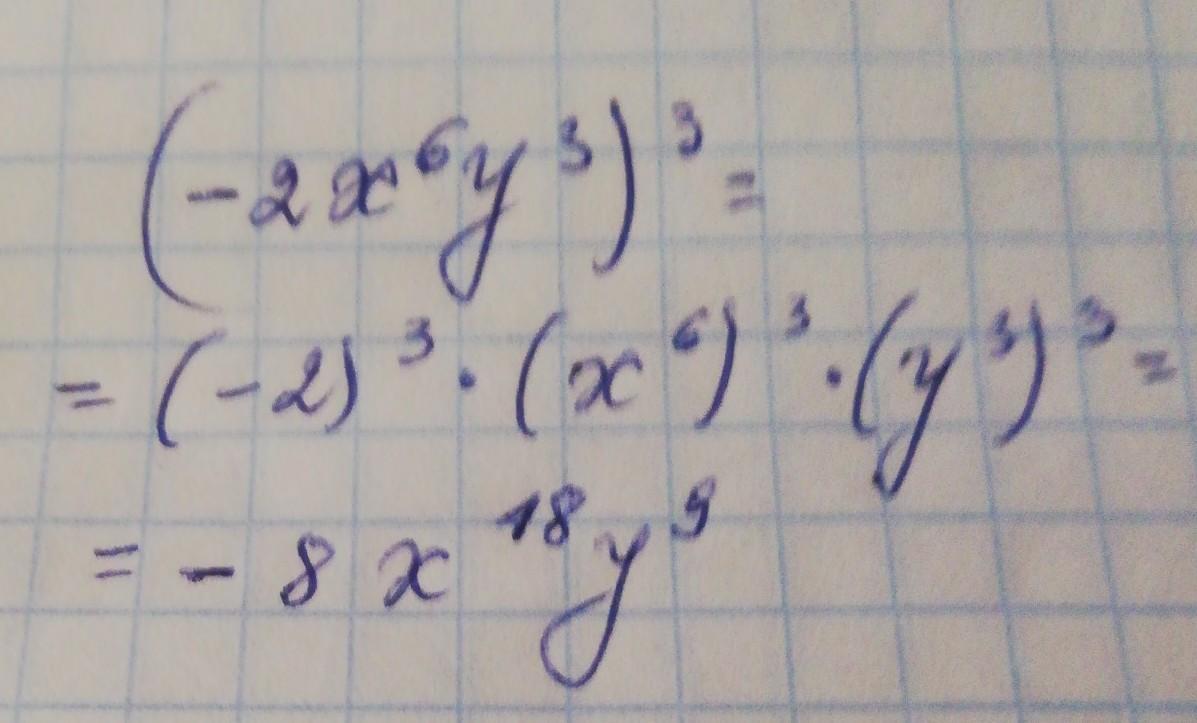 (-2x⁶y³)³ =
= (-2)³ · (x⁶)³ · (y³)³ =
= - 8 x¹⁸y⁹